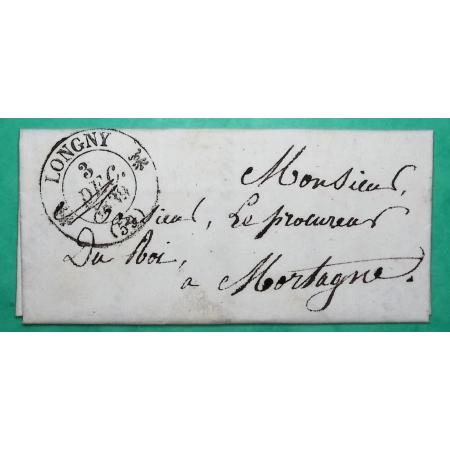 LONGNY
3
DEC.
(59)
Monsieur,
Monsieur, Le procureur
Du Roi,
a Mortagne.